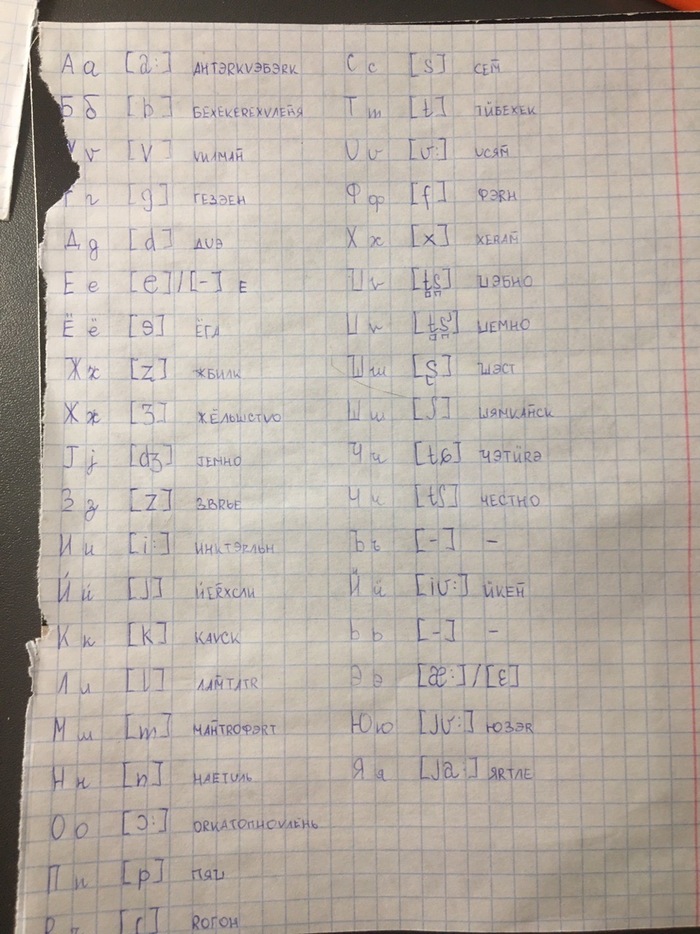 А а [a:] АНТЭRКVЭБЭRК
Б б [b] БЕХЕКЕRЕХVЛЕЙЯ
V v [V] VИЛМАЙ
Г г [g] ГЕЗЭЕН
Д д [d] ДUЭ
Е е [e]/[-] Е
Ё ё [э] ЁГА
Ж ж [z] ЖБИЛК
Ж ж [ʒ] ЖЁЛЬШСТVО
J j [dʒ] JЕМНО
З з [z] ЗВRЬЕ
И и [i:] ИНКТЭRЛЬН
Й й [J] ЙЕЙХСЛИ
К к [k] КАVСК
Л л [l] ЛАЙТЛТR
М м [m] МАЙТRОФЭRТ
Н н [n] НАЕТUЛЬ
О о [ɔ:] ОRКАТОПНОVЛЕНЬ
П п [p] ПЯЦ
[r] RОГОН
С с [s] СЕЙ
Т т [t] ТЙБЕХЕК
U u [ʊ:] UСЯЙ
Ф ф [f] ФЭRН
Х х [x] ХЕRАЙ
Ц ц [tʂ] ЦЭБНО
Ц ц [tʂ] ЦЕМНО
Ш ш [ʂ] ШЭСТ
Ш ш [ʃ] ШЯМКАЙСК
Ч ч [tɕ] ЧЭТЙRЭ
Ч ч [tʃ] ЧЕСТНО
Ъ ъ [-] –
Й й [iʊ:] ЙКЕЙ
Ь ь [-] –
Э э [æ:]/[ɛ]
Ю ю [Jʊ:] ЮЗЭR
Я я [Ja:] ЯRТЛЕ